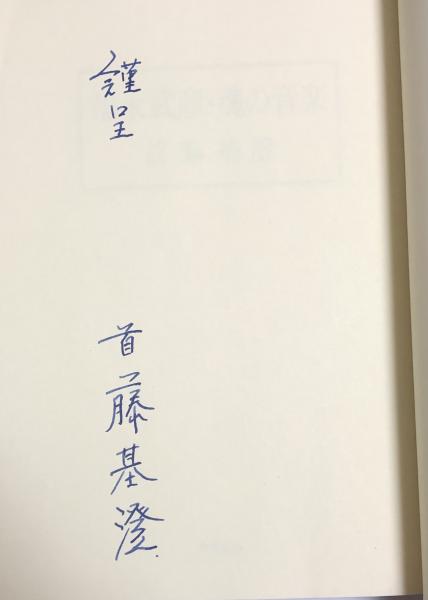 謹呈
首藤基澄